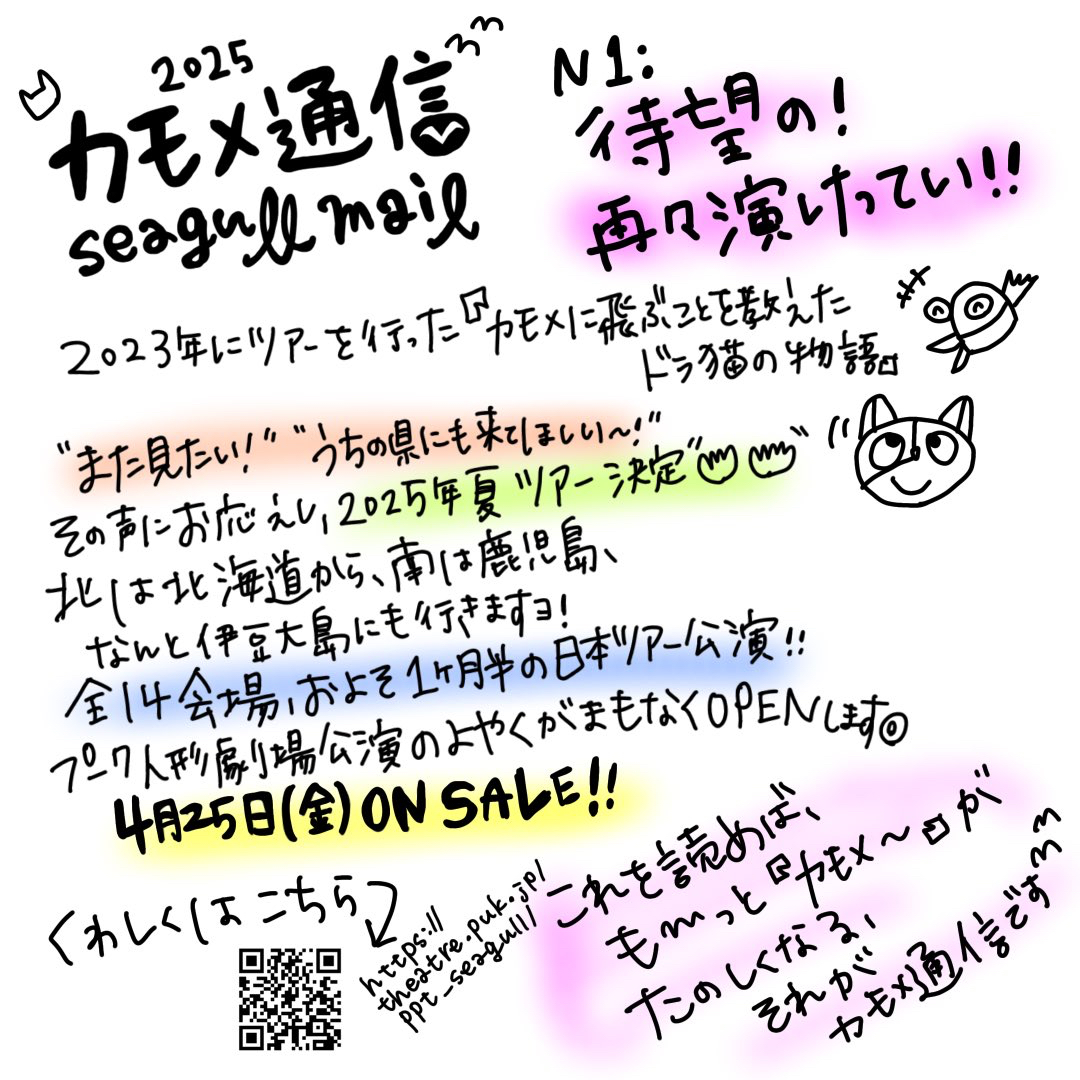 2025
カモメ通信
seagull mail
N1:
待望の!
再々演けってい!!
2023年にツアーを行った『カモメに飛ぶことを教えた
ドラ猫の物語』
"また見たい!" "うちの県にも来てほしい〜!"
その声にお応えし、2025年夏ツアー決定
北は北海道から、南は鹿児島、
なんと伊豆大島にも行きますヨ!
全14会場、およそ1ヶ月半の日本ツアー公演!!
プーク人形劇場公演のよやくがまもなくOPENします◎
4月25日(金) ON SALE!!
くわしくはこちら
https://
theatre.puk.jp/
ppt_seagull/
これを読めば、
も〜っと『カモメ〜』が
たのしくなる、
それが
カモメ通信です